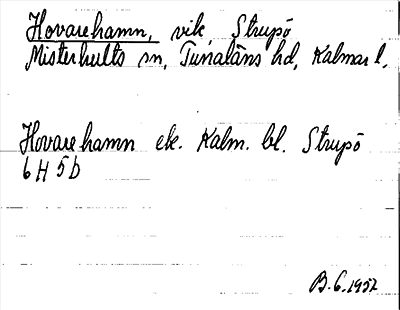 Hovarehamn, vik, Strupö
Misterhults sn, Tunaläns hd, Kalmar l,
Hovarehamn ek. Kalm. bl. Strupö
6 H 5 b
B.G. 1952